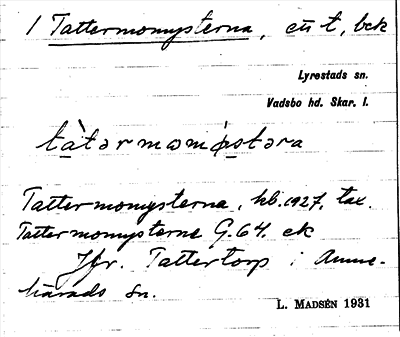 1 Tattermomysterna, en t, bek
Lyrestads sn.
Vadsbo hd. Skar. l.
tàtərmomẏstəra
Tattermomysterna, hb. 1927, tax.
Tattermomysterne G.64. ek
Jfr. Tattertorp i Amne-
härads sn.
L. Madsén 1931